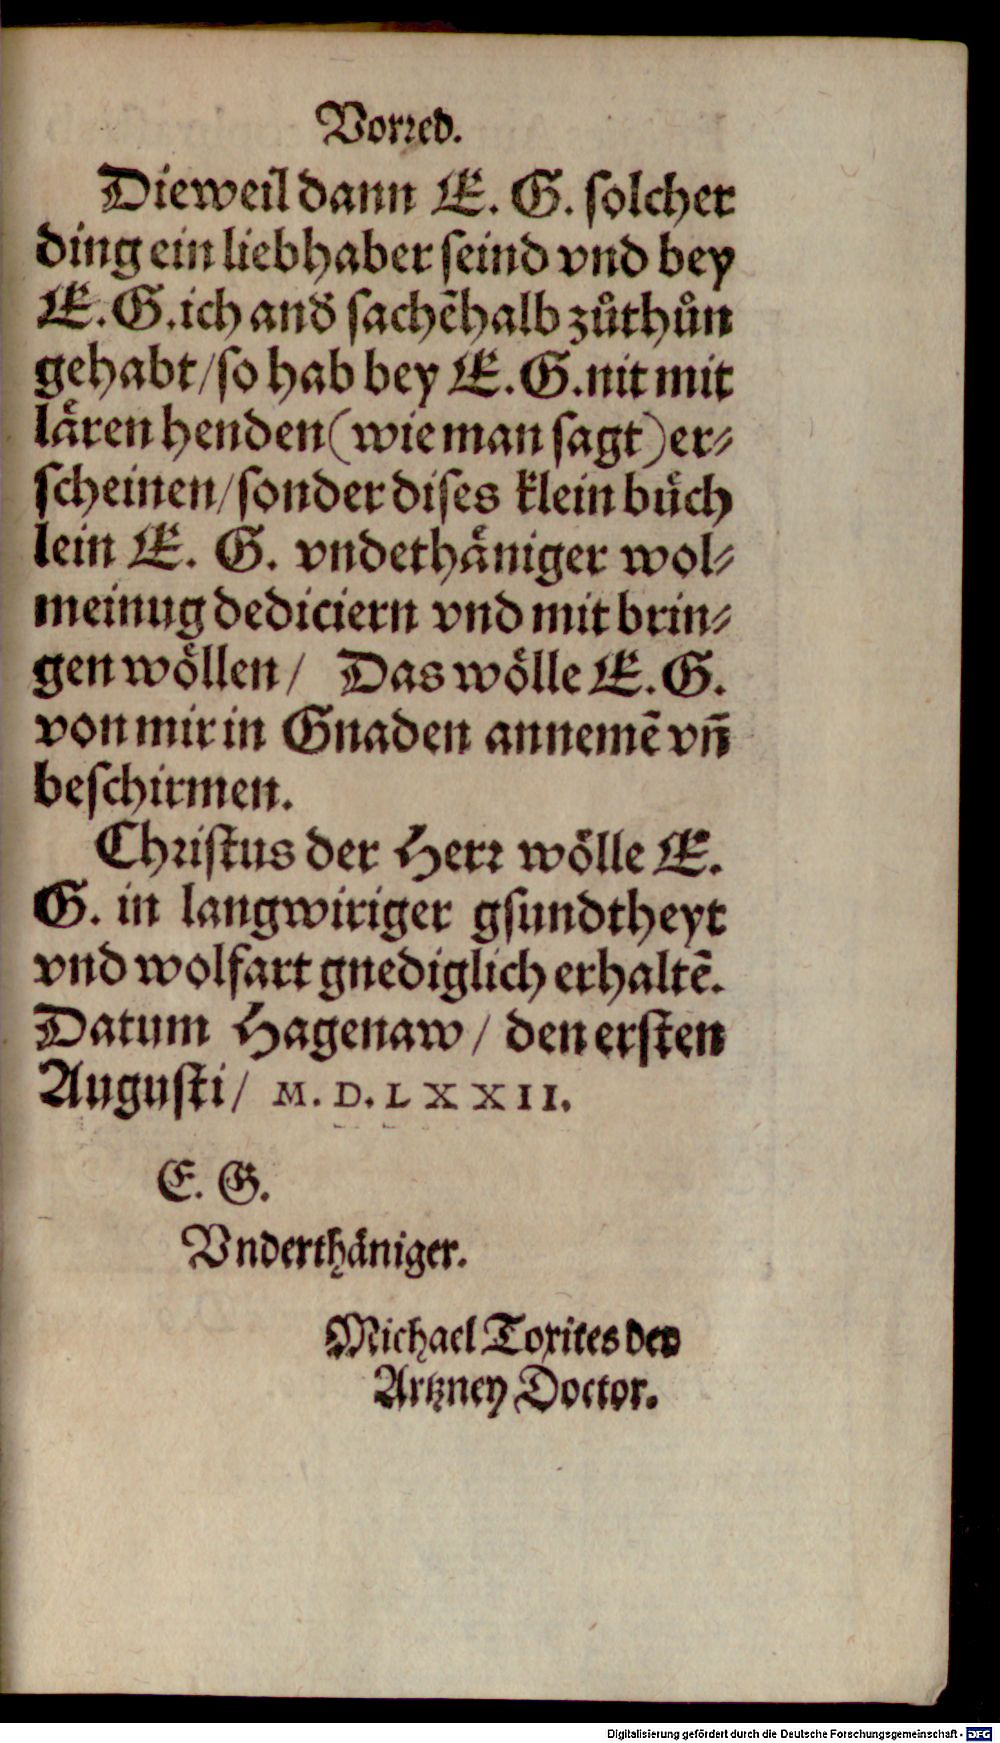 Vorꝛed.
Dieweil dann E. G. ſolcher
ding ein liebhaber ſeind vnd bey
E. G. ich and̃ ſachẽhalb zůthůn
gehabt/ ſo hab bey E. G. nit mit
låren henden (wie man ſagt) er⸗
ſcheinen/ ſonder diſes klein bůch
lein E. G. vndethåniger wol⸗
meinug dediciern vnd mit brin⸗
gen woͤllen/ Das woͤlle E. G.
von mir in Gnaden annemẽ vñ
beſchirmen.
Chꝛiſtus der Herꝛ woͤlle E.
G. in langwiriger gſundtheyt
vnd wolfart gnediglich erhaltẽ.
Datum Hagenaw/ den erſten
Auguſti/ M. D. L X X I I.
E. G.
Vnderthåniger.
Michael Toxites der
Artzney Doctor.
Digitalisierung gefördert durch die Deutsche Forschungsgemeinschaft - DFG